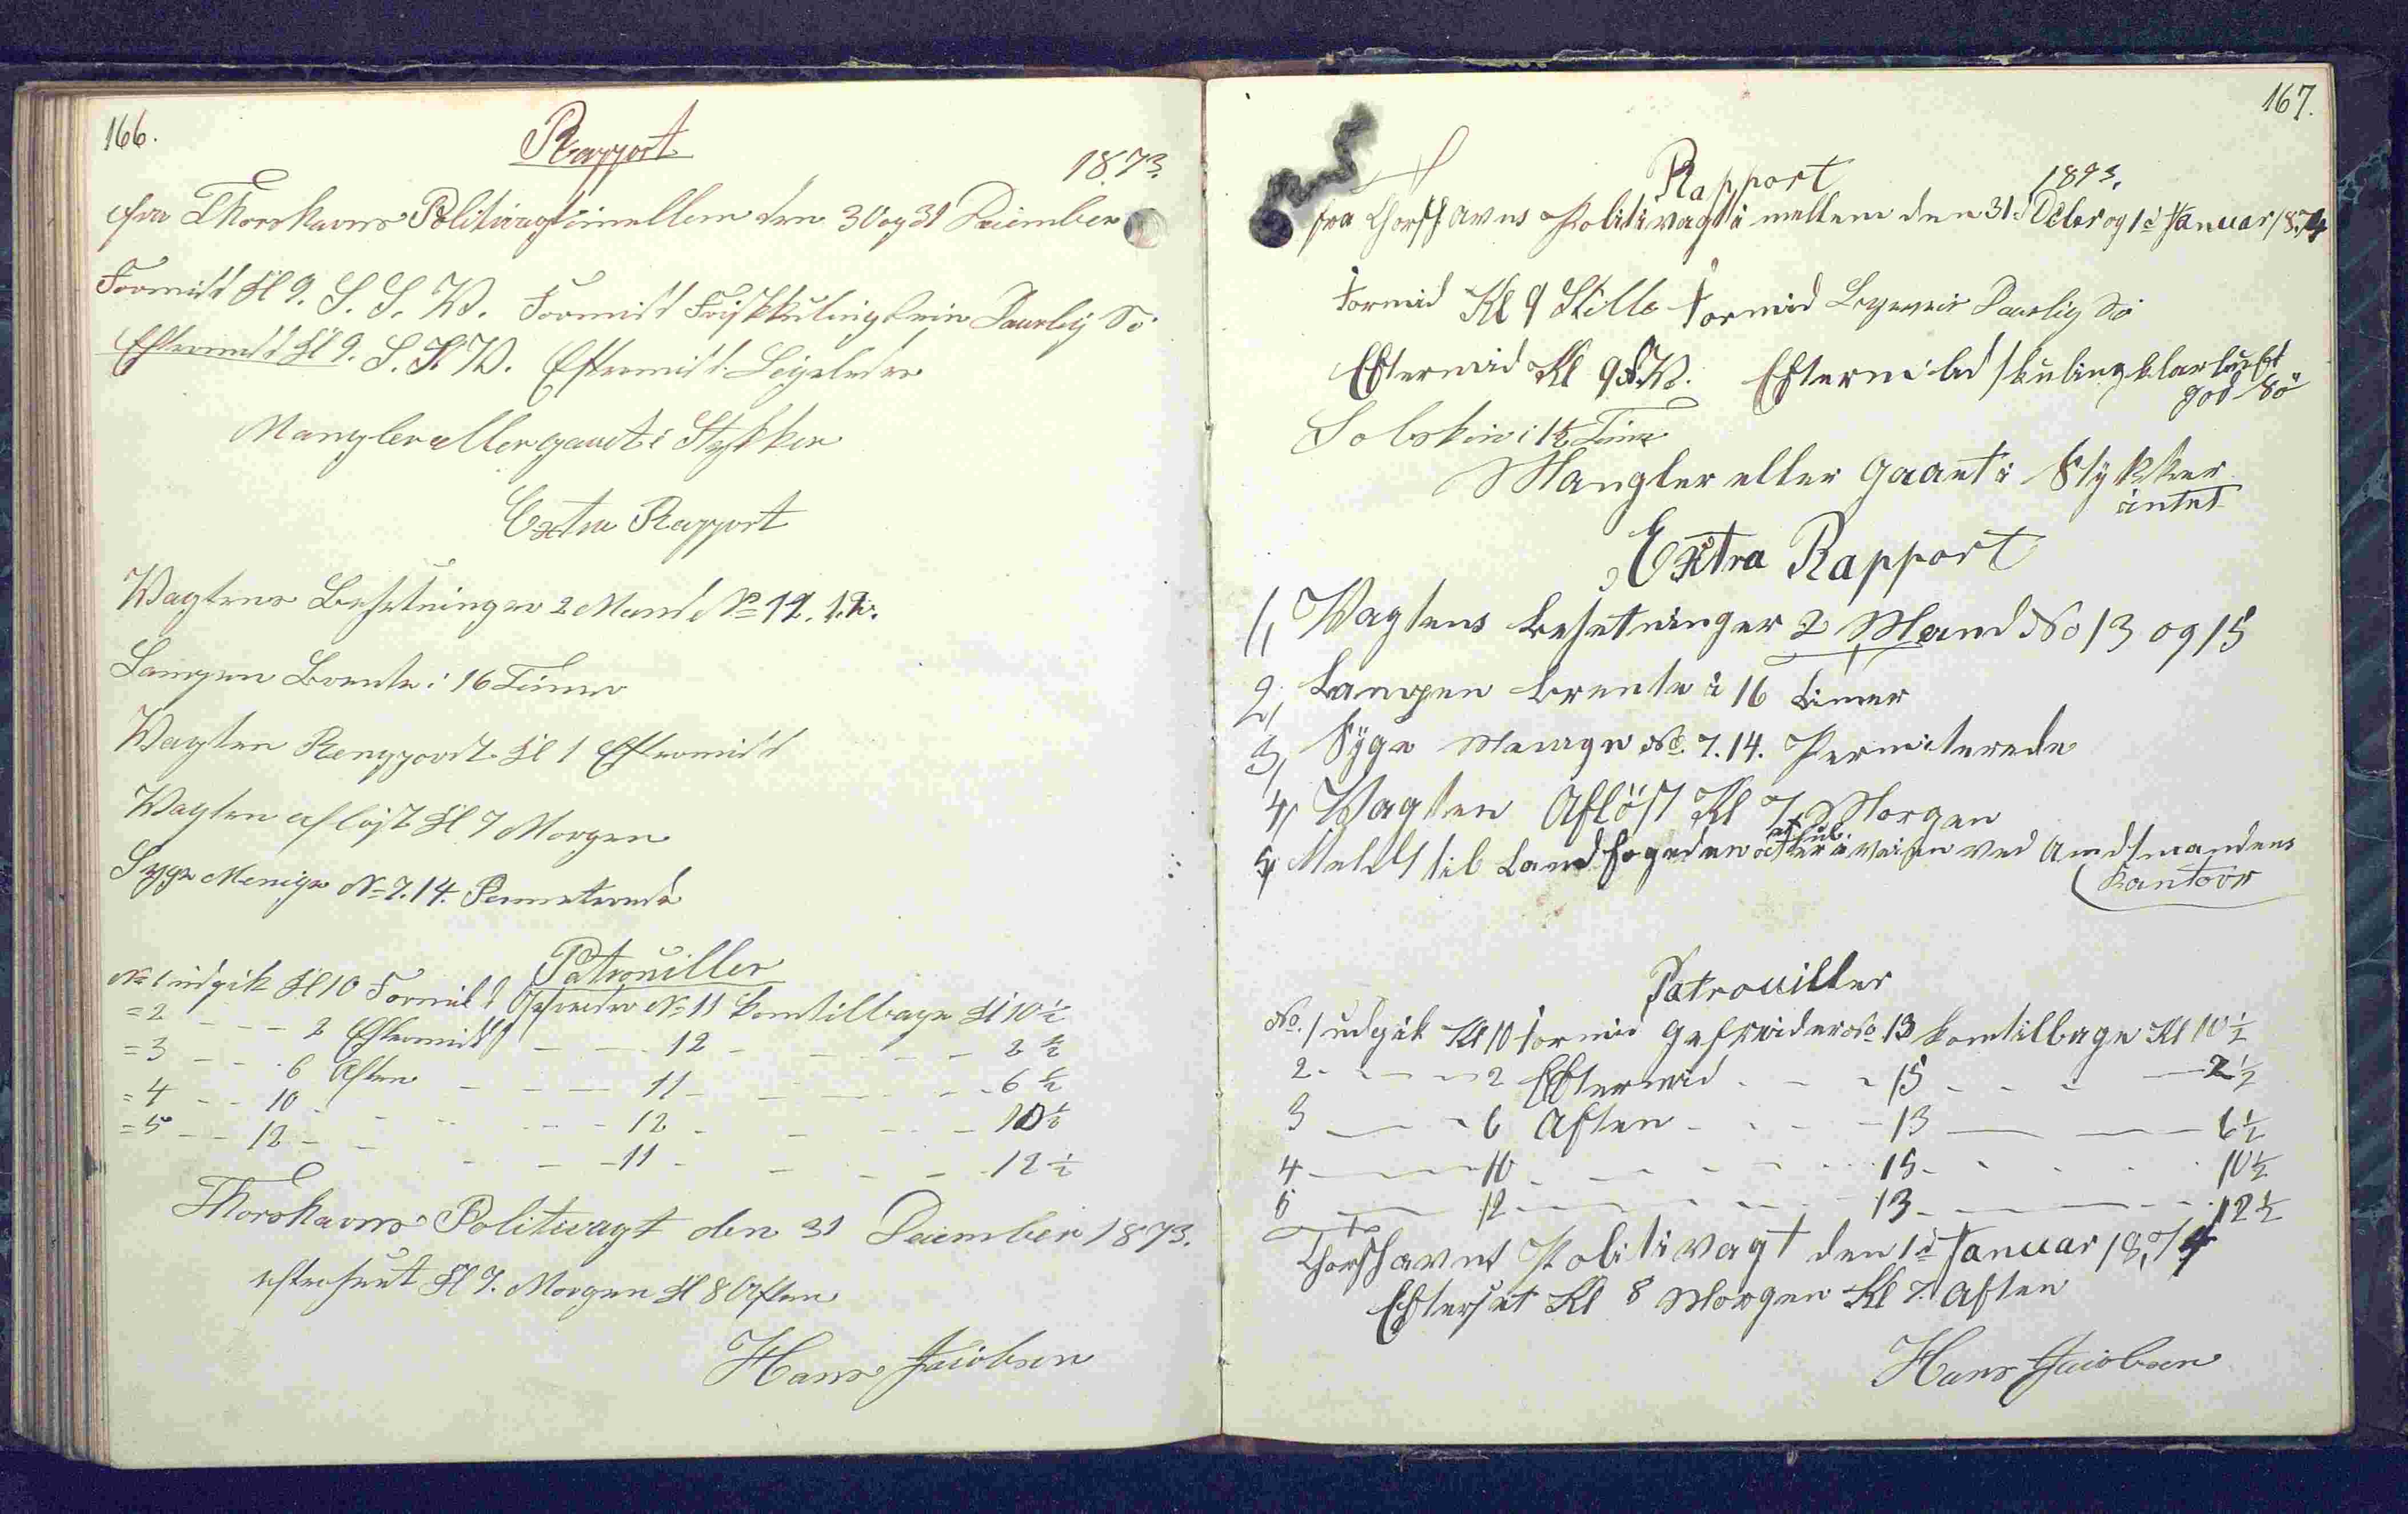 166.
Rapport
1873.
fra Thorshavns Politivagt imellem den 30 og 31 December
Formidd Kl 9. S. S. W. Formidd Friskkuling Daarlig Sö
Eftermidd Kl 9. S. S. W. Eftermidd.
Mangler eller gaaet i Stykker
Extra Rapport
Vagtens Besetninger 2 Mand No 11. 12.
Lampen Brente i 16 Timer
Vagten Rengjordt Kl 1 Eftermidd
Vagten aflöst Kl 7 Morgen
Syge Menige No 7. 14. Permeterede
Patrouiller
No 1 udgik Kl 10 Formidd Gefreider No 11 komtilbage Kl 10 1/2
=2 - - - 2 Eftermidd - - - 12 - - - 2 1/2
=3 - - - 6 Aften - - - 11 - - - 6 1/2
=4 - - 10 - - - 12 - - - 10 1/2
=5 - - 12 - - - 11 - - - 12 1/2
Thorshavns Politivagt den 31 December 1873.
efterseet Kl 7. Morgen Kl 8 Aften
Hans Jacobsen
167.
Rapport
1873.
fra Thorshavns Politivagt i mellem den 31d Decbr og 1d Januar 1874
Formid Kl 9 Stille Formid Daarlig Sö
Eftermid Kl 9 S.W. Eftermidd kuling klar luft
god Sö
Solskin i 1 1/2 Time
Mangler eller gaaet i Stykker
intet
Extra Rapport
1, Vagtens besetninger 2 Mand No 13 og 15
2, Lampen brente i 16 timer
3, Syge Menige No. 7. 14. Permiterede
4, Vagten Aflöst Kl 7 Morgen
5, Meldt til Landfogeden at hul er i veien ved Amdtmandens
Kantoor
Patrouiller
No. 1 udgik Kl 10 formid gefreider No 13 komtilbage Kl 10 1/2
2 - - - 2 Eftermid - - - 15 - - - 2 1/2
3 - - - 6 Aften - - - 13 - - - 6 1/2
4 - - - 10 - - - 15 - - - 10 1/2
5 - - - 12 - - - 13 - - - 12 1/2
Thorshavns Politivagt den 1d Januar 1874
Efterset Kl 8 Morgen Kl 7. Aften
Hans Jacobsen